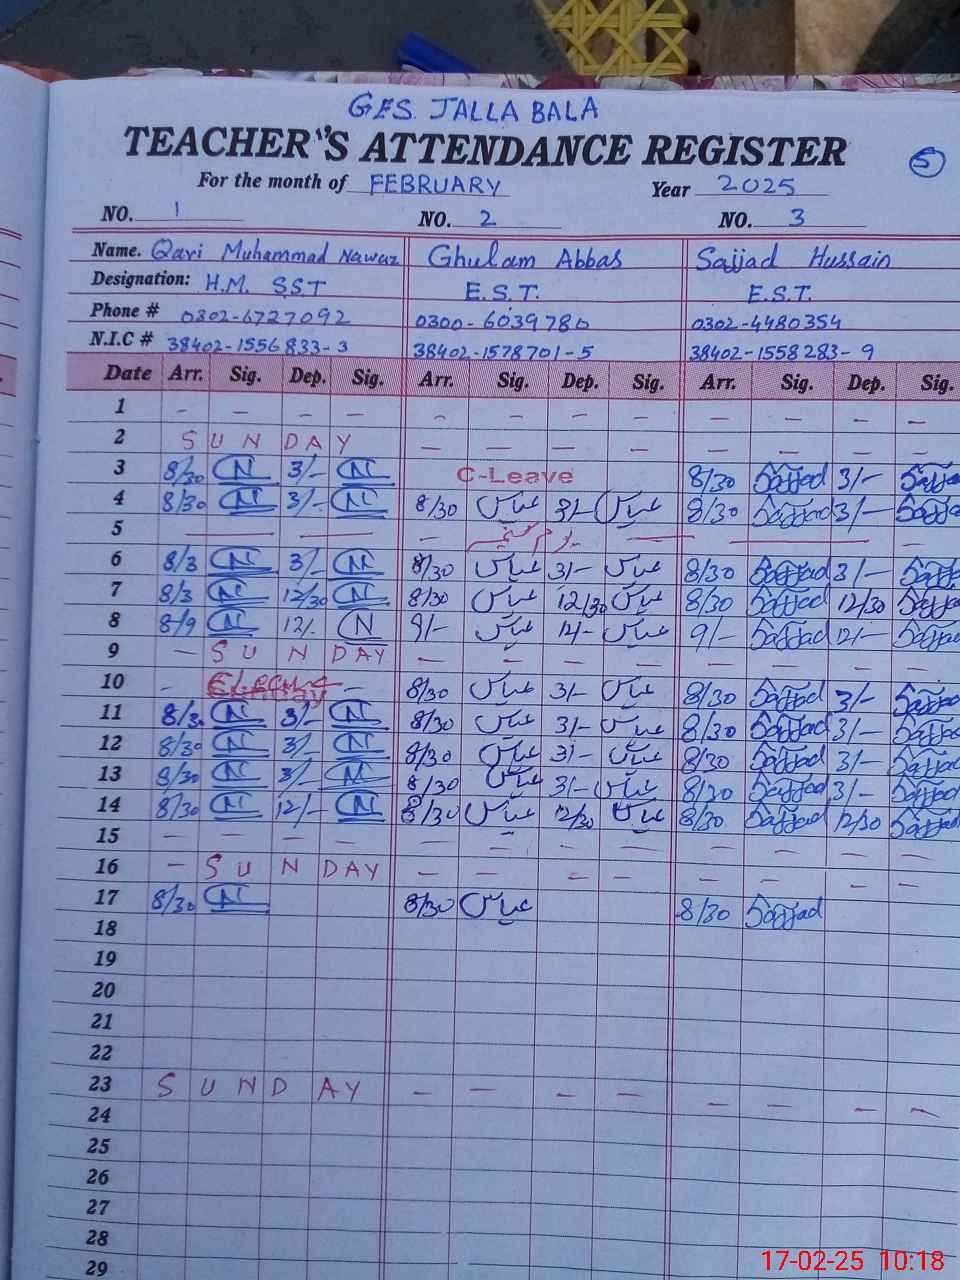 GES. JALLA BALA
TEACHER'S ATTENDANCE REGISTER 5
For the month of FEBRUARY Year 2025
NO. 1 NO. 2 NO. 3
Name. Qari Muhammad Nawaz Ghulam Abbas Sajjad Hussain
Designation: H.M. SST E.S.T. E.S.T.
Phone # 0302-6727092 0300-6039780 0302-4480354
N.I.C # 38402-1556833-3 38402-1578701-5 38402-1558283-9
Date Arr. Sig. Dep. Sig. Arr. Sig. Dep. Sig. Arr. Sig. Dep. Sig.
1 - - - - - - - - - - - -
2 SUNDAY - - - - - - - -
3 8/30 N 3/- N C-Leave 8/30 Sajjad 3/- Sajjad
4 8/30 N 3/- N 8/30 عباس 3/- عباس 8/30 Sajjad 3/- Sajjad
5 - - - - یوم کشمیر - - -
6 8/3 N 3/- N 8/30 عباس 3/- عباس 8/30 Sajjad 3/- Sajjad
7 8/3 N 12/30 N 8/30 عباس 12/30 عباس 8/30 Sajjad 12/30 Sajjad
8 8/9 N 12/- N 9/- عباس 12/- عباس 9/- Sajjad 12/- Sajjad
9 - SUNDAY - - - - - - - -
10 - - 8/30 عباس 3/- عباس 8/30 Sajjad 3/- Sajjad
11 8/3 N 3/- N 8/30 عباس 3/- عباس 8/30 Sajjad 3/- Sajjad
12 8/30 N 3/- N 8/30 عباس 3/- عباس 8/30 Sajjad 3/- Sajjad
13 8/30 N 3/- N 8/30 عباس 3/- عباس 8/30 Sajjad 3/- Sajjad
14 8/30 N 12/- N 8/30 عباس 12/30 عباس 8/30 Sajjad 12/30 Sajjad
15 - - - - - - - - - - - -
16 - SUNDAY - - - - - - - -
17 8/30 N 8/30 عباس 8/30 Sajjad
18
19
20
21
22
23 SUNDAY - - - - - - - -
24
25
26
27
28
29
17-02-25 10:18